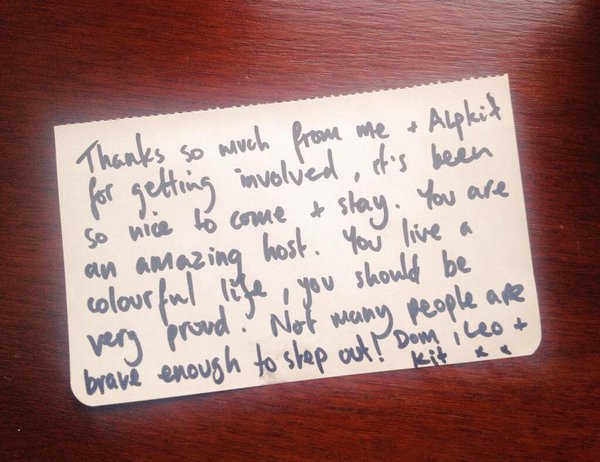 Thanks so much from me + Alpkit
for getting involved, it's been
so nice to come + stay. You are
an amazing host. You live a
colourful life, you should be
very proud. Not many people are
brave enough to step out! Dom, Leo +
Kit x x